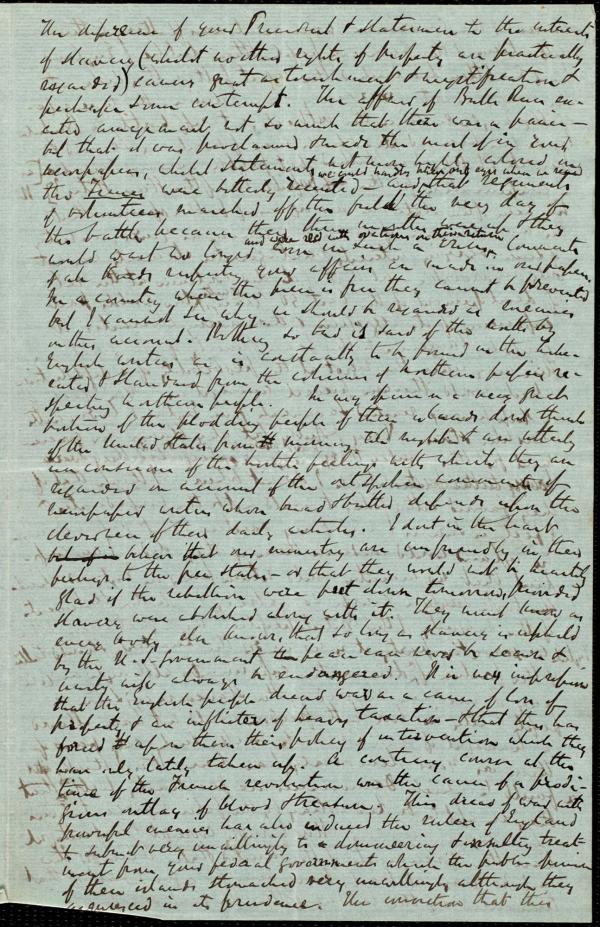 The deference of your President & statesmen to the interests
of slavery (whilst no other rights of property are practically
regarded) causes great astonishment & mystification &
perhaps some contempt. The affair of Bulls Run ex-
cited amazement, not so much that there was a panic—
but that it was proclaimed & made the most of in your
newspapers, whilst statements not more highly colored in
the Times were bitterly resented— and that regiments
we could hardly believe our eyes when we read
of volunteers marched off the field the very day of
the battle because their time was & they
would wait no longer even in such a crisis,
and were recd with ovations on their return
Comments
of all kinds respecting your affairs are made in our papers.
In a country where the press is free they cannot be prevented
but I cannot see why we should be regarded as enemies
on this account. Nothing so bad is said of the North by
English writers as is constantly to be found in the
& Standard from the columns of Northern papers re-
specting Northern people. In my opinion a very great
portion of the plodding people of these islands dont think
of the United States from morning till night & are utterly
unconscious of the hostile feelings with which they are
regarded on account of the outspoken comments of
newspaper writers whose bread & butter depends upon the
cleverness of their daily articles. I dont in the least
believe that our ministry are unfriendly in their
feelings to the free states— or that they would not be heartily
glad if the rebellion were put down tomorrow, provided
slavery were abolished along with it. They must know as
every body else knows, that so long as slavery is upheld
by the U.S. Government peace can never be secure &
unity must always be endangered. It is my impression
that the English people dread war as a cause of loss of
property & an inflicter of heavy taxation— & that this has
forced upon them their policy of non-intervention which they
have only lately taken up. A contrary course at the
time of the French revolution was the cause of a prodi-
gious outlay of blood & treasure. This dread of war with
powerful enemies has also induced the rulers of England
to submit very unwillingly to a domineering & insulting treat-
ment from your federal governments which the public opinion
of these islands stomached very unwillingly although they
acquiesced in its prudence. The conviction that this